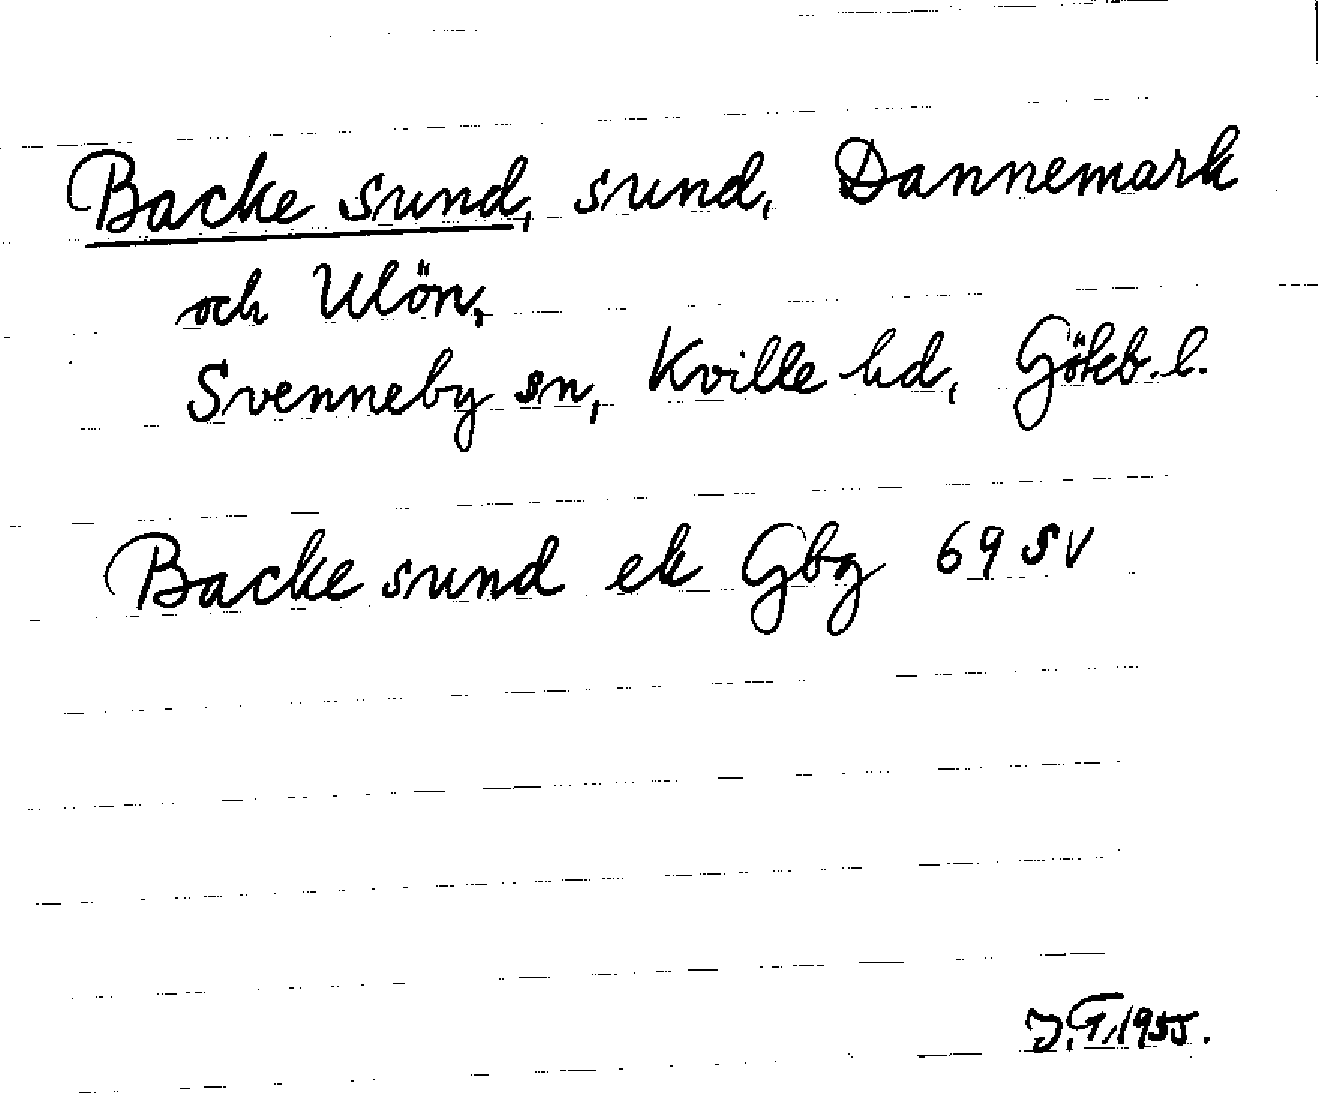 Backe sund, sund, Dannemark
och Ulön,
Svenneby sn, Kville hd, Göteb. l.
Backe sund ek Gbg 69 SV
J.T. 1955.